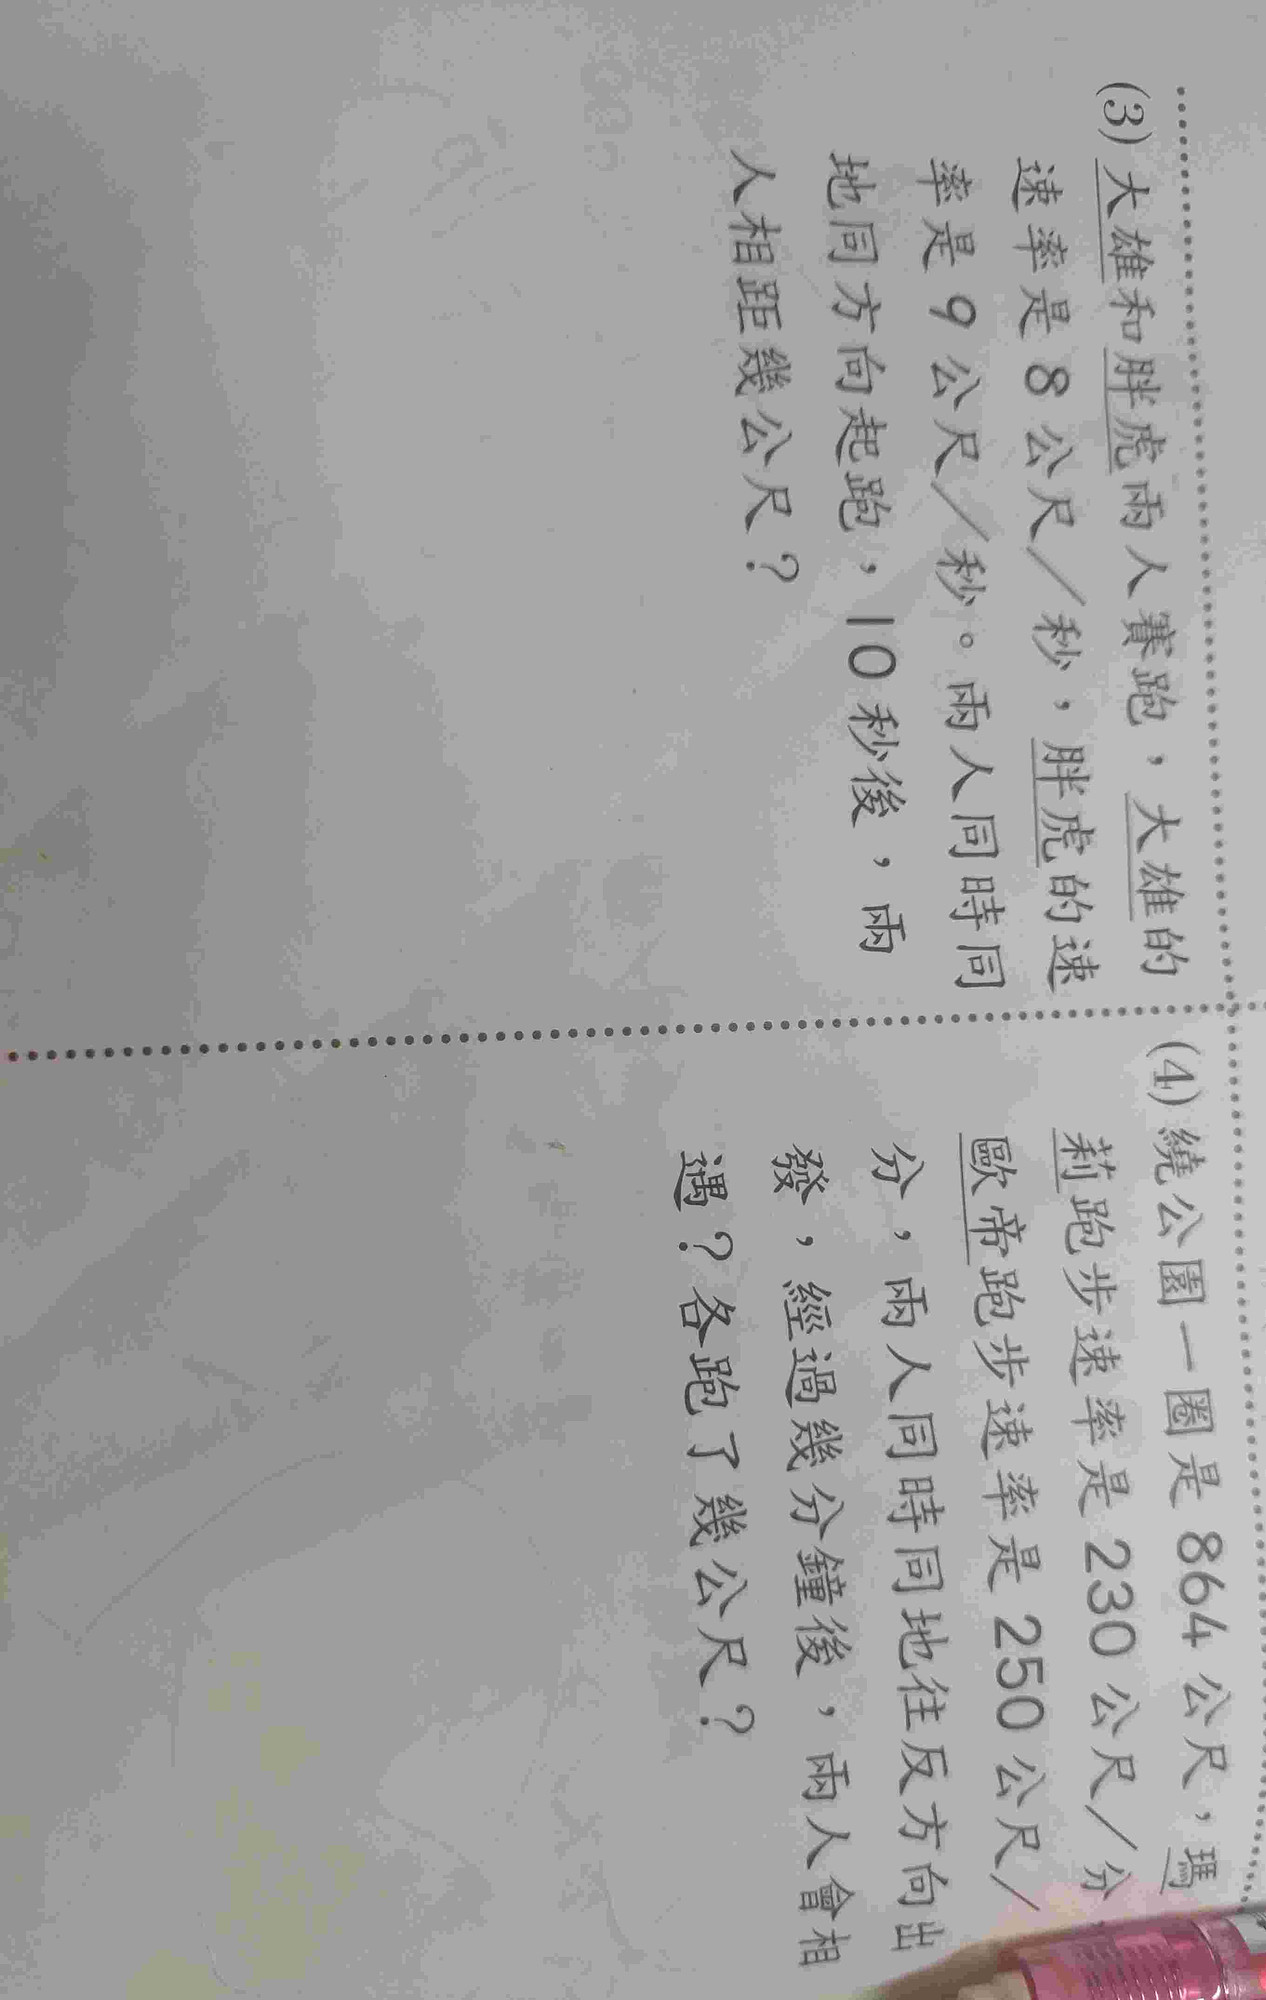 (3) 大雄和胖虎兩人賽跑，大雄的
速率是 8 公尺／秒，胖虎的速
率是 9 公尺／秒。兩人同時同
地同方向起跑，10 秒後，兩
人相距幾公尺？
(4) 繞公園一圈是 864 公尺，瑪
莉跑步速率是 230 公尺／分
歐帝跑步速率是 250 公尺／
分，兩人同時同地往反方向出
發，經過幾分鐘後，兩人會相
遇？各跑了幾公尺？